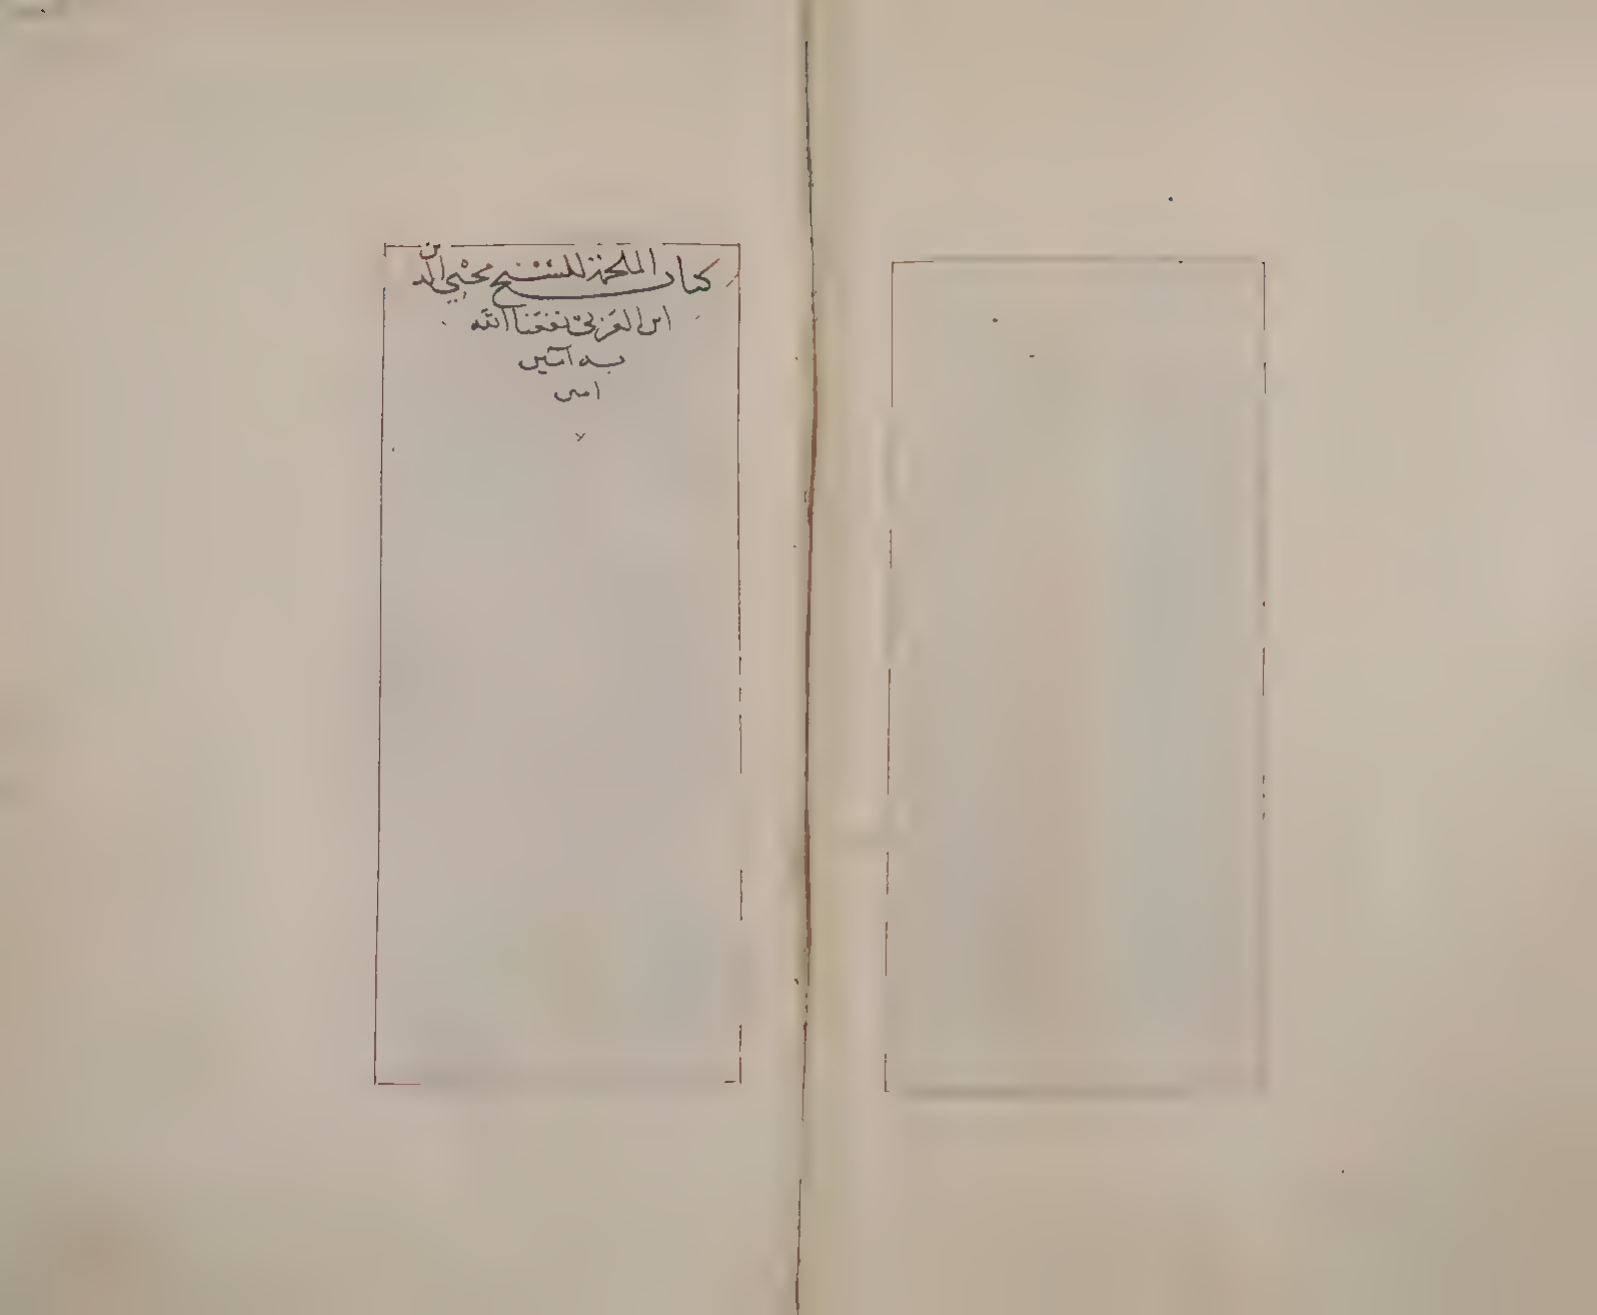 كتاب الملحمة للشيخ محيي الدين
ابن العربي نفعنا الله
به آمين
امين